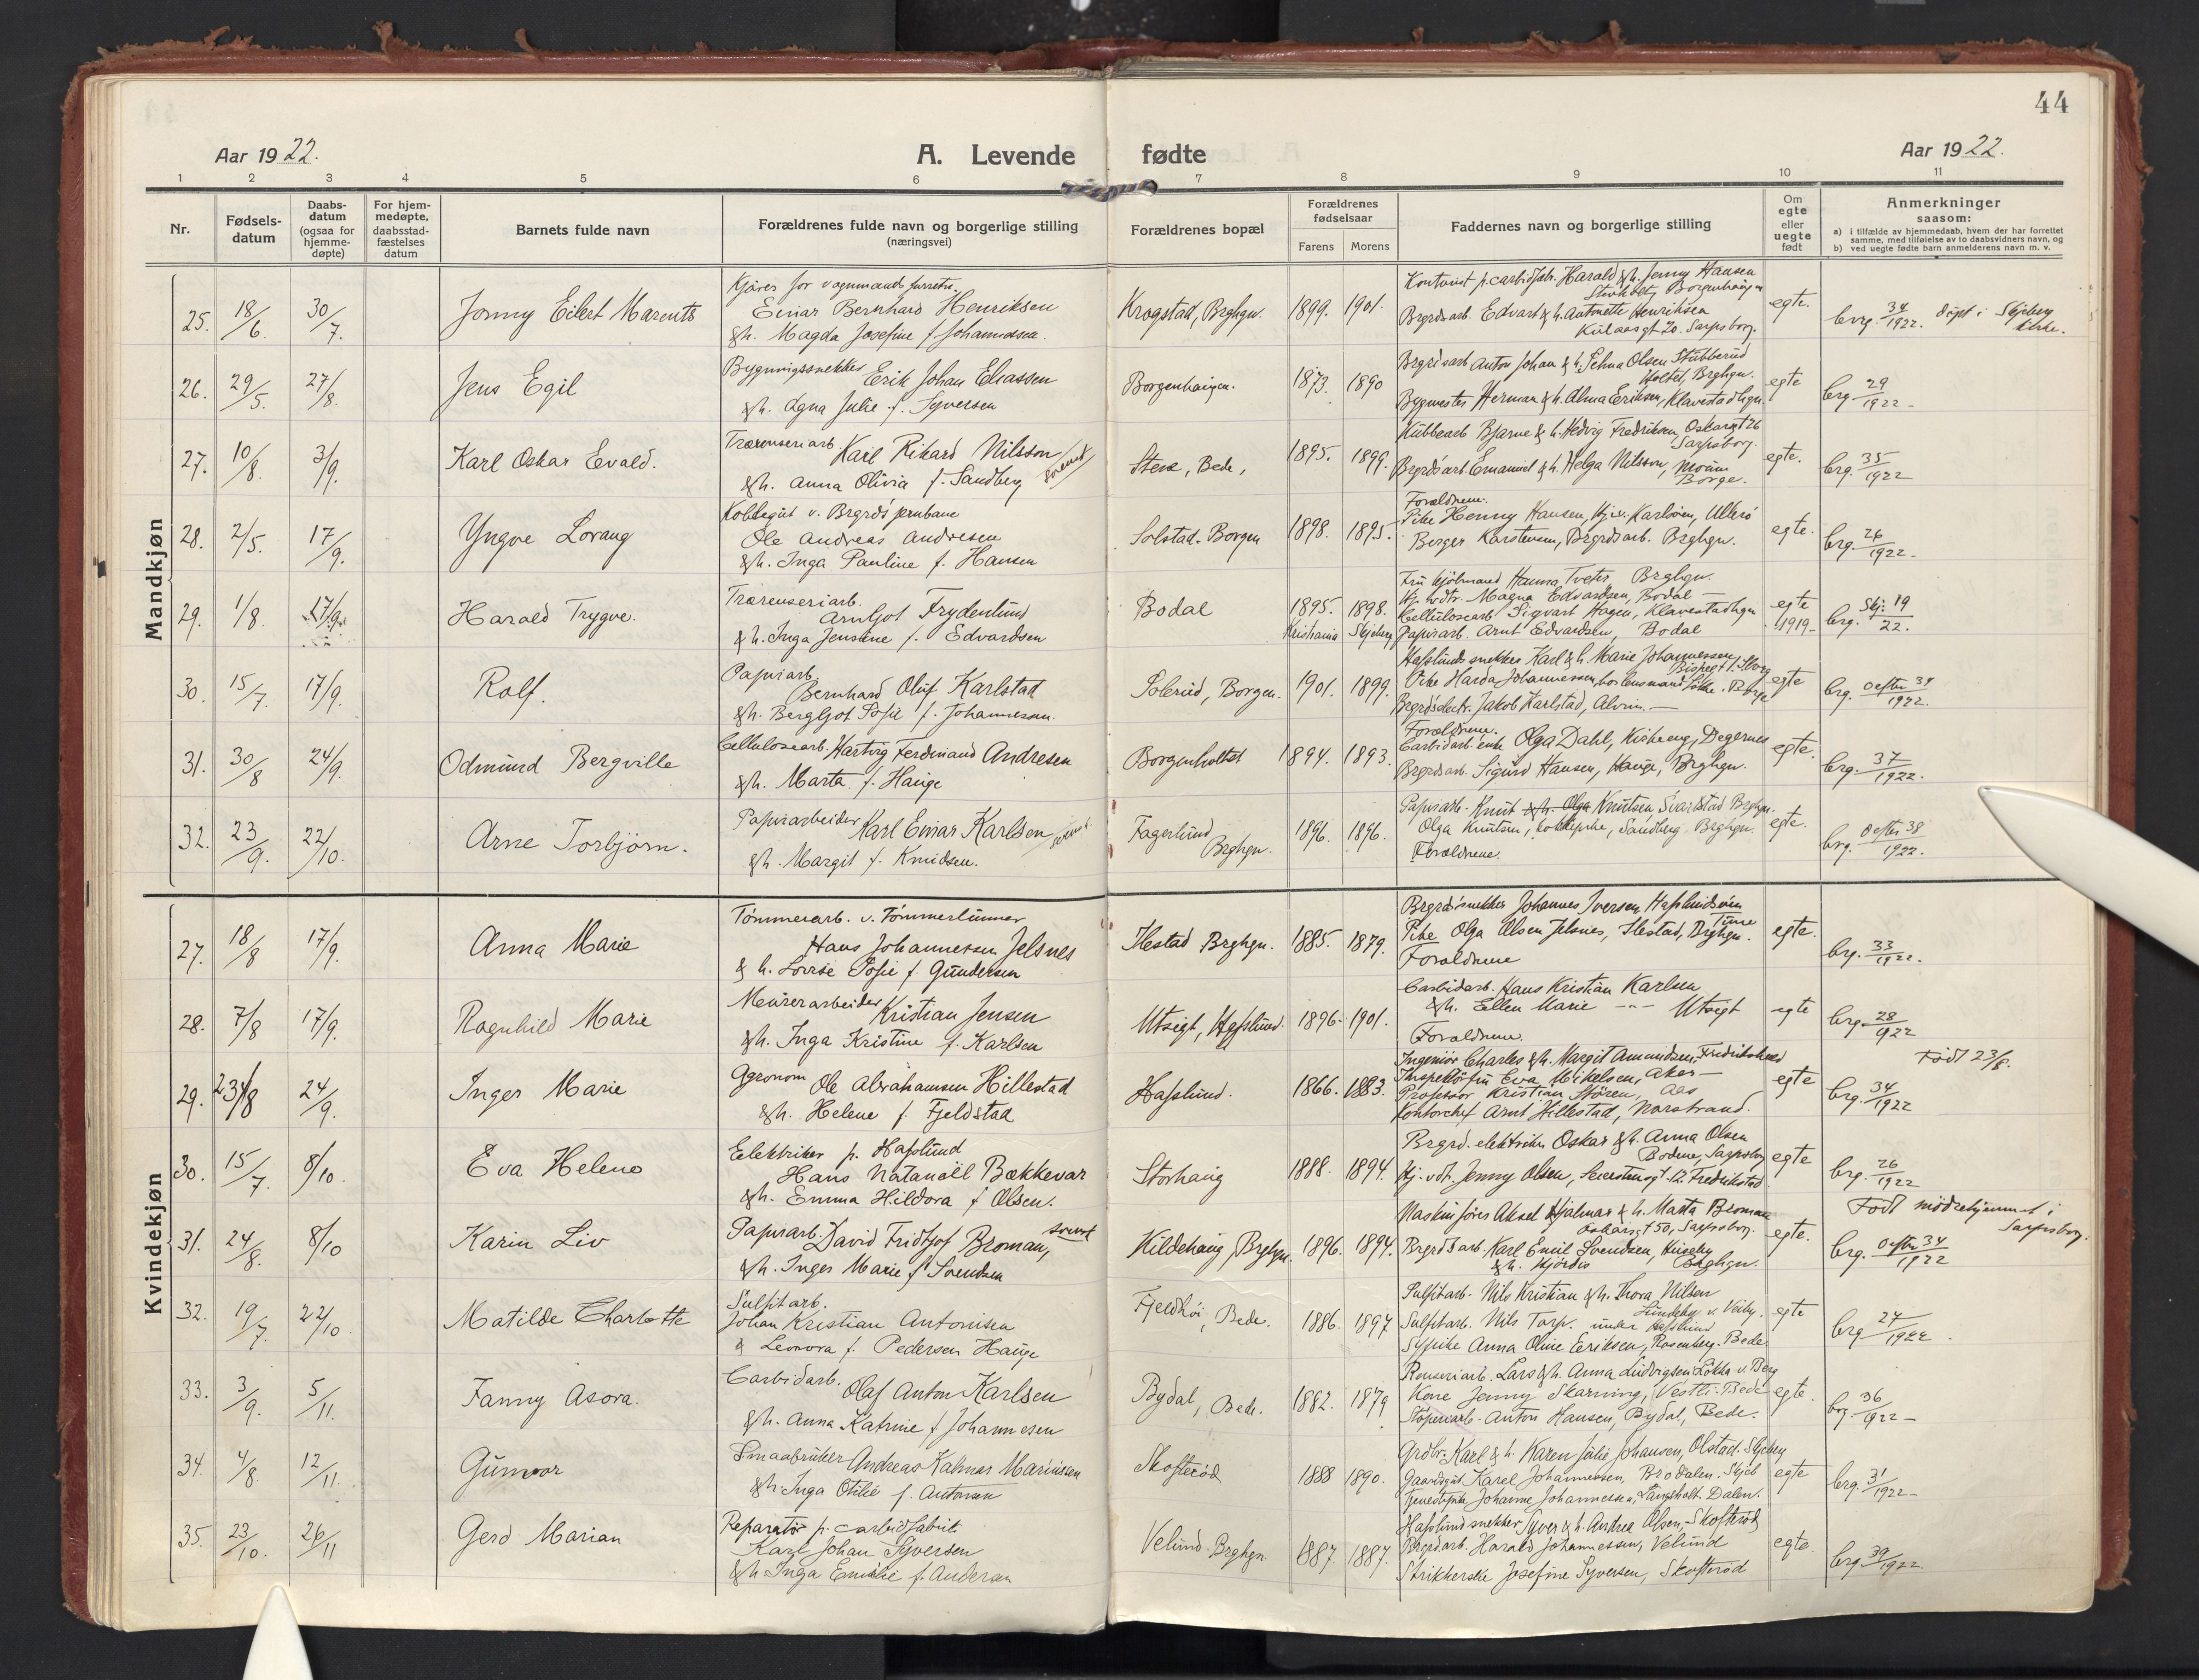 44
Aar 1922.
A. Levende fødte
Aar 1922.
1 2 3 4 5 6 7 8 9 10 11
Nr.
Fødsels-
datum
Daabs-
datum
(ogsaa for
hjemme-
døpte)
For hjem-
medøpte,
daabsstad-
fæstelses
datum
Barnets fulde navn
Forældrenes fulde navn og borgerlige stilling
(næringsvei)
Forældrenes bopæl
Forældrenes
fødselsaar
Farens Morens
Faddernes navn og borgerlige stilling
Om
egte
eller
uegte
født
Anmerkninger
saasom:
a) i tilfælde av hjemmedaab, hvem der har forrettet
samme, med tilføielse av to daabsvidners navn, og
b) ved uegte fødte barn anmelderens navn m. v.
Mandkjøn
25. 18/6 30/7. Jonny Eilert Marents
Kjører for vognmandsforretn.
Einar Bernhard Henriksen
&h. Magda Josefine f. Johannesen.
Krogstad, Brghgn. 1899. 1901.
Kontorist p. carbidfabr. Harald &h. Jenny Hansen
Borgenhaugen
Brgrdsarb. Edvart &h. Antonette Henriksen
Kulaasgt 20. Sarpsborg.
egte.
brg. 34/1922. døpt i Skjeberg
kirke.
26. 29/5. 27/8. Jens Egil
Bygningssnekker Erik Johan Eliassen
&h. Agna Julie f. Syversen
Borgenhaugen. 1873. 1890
Brgrdsarb Anton Johan & h. Selma Olsen Stubberud
Holtet, Brghgn.
Bygmester Herman &h. Alma Eriksen, Klavestadhgn.
egte
brg. 29/1922 -
27. 10/8. 3/9. Karl Oskar Evald.
Trærenseriarb Karl Rikard Nilsson
&h. Anna Olivia f. Sandberg svensk
Stene, Bede, 1895. 1899.
Kubbearb Bjarne & h. Hedvig Fredriksen, Oskarsgt 26
Sarpsborg.
Brgrdsarb Emanuel &h. Helga Nilsson, Moum
Borge.
egte.
brg. 35/1922
28. 2/5. 17/9. Yngve Lorang
Koblegut v. Brgrds prubane
Ole Andreas Andresen
&h. Inga Pauline f. Hansen
Solstad. Borgen 1898. 1895.
Forældrene.
Pike Henny Hansen, Karlsøen, Ullerø
Birger Karstensen, Brgrdsarb. Brghgn.
egte.
brg. 26/1922 -
29. 1/8. 17/9. Harald Trygve.
Trærenseriarb.
Arnljot Frydenlund
& h. Inga Jensine f. Edvardsen
Bodal 1895. 1898.
Kristiania Skjeberg
Fru kjøbmand Hanna Tveter, Brghgn.
Hj. vdtr. Magna Edvardsen, Bodal -
Cellulosearb Sigvart Hagen, Klavestadhgn
Papirarb. Arnt Edvardsen, Bodal
egte
1919-
brg. Skj: 19/22.
30. 15/7. 17/9. Rolf.
Papirarb.
Bernhard Oluf Karlstad
&h. Bergljot Sofie f. Johannesen.
Solerud, Borgen. 1901. 1899.
Hafslunds snekker Karl & h. Marie Johannessen
Bispegt 1. Sbrg
Pike Harda Johannessen, hos lensmand Løkke. Borge
Brgrdselektr. Jakob Karlstad, Alvim. -
egte
brg. Oefter 34/1922.
31. 30/8 24/9. Odmund Bergville
Cellulosearb. Hartvig Ferdinand Andresen
&h. Marta f. Hauge
Borgenholtet 1894. 1893.
Forældrene.
Carbidarb enke Olga Dahl, Degernes
Brgrdsarb. Sigurd Hansen, Hauge, Brghgn.
egte.
brg. 37/1922.
32. 23/9. 22/10. Arne Torbjørn.
Papirarbeider Karl Einar Karlsen svensk.
&h. Margit f. Knudsen.
Fagerlund
Brghgn. 1896. 1896.
Papirarb. Knut &h. Olga Knutsen, Svarlstad Brghgn.
Olga Knutsen, kokkepike, Sandberg, Brghgn.
Forældrene.
egte.
brg. Oefter 38/1922.
Kvindekjøn
27. 18/8 17/9. Anna Marie
Tømmerarb. v. Tømmerlunner
Hans Johannesen Jelsnes
& h. Lovise Sofie f. Gundersen
Ilestad Brghgn. 1885. 1879.
Brgrdssnekker Johannes Iversen Hafslundsøen
Tune
Pike Olga Olsen Jelsnes, Ilestad, Brghgn.
Forældrene
egte.
brg. 33/1922.
28. 7/8 17/9. Ragnhild Marie
Meurerarbeider Kristian Jensen
&h. Inga Kristine f. Karlsen
Utsigt, Hafslund. 1896- 1901.
Carbidarb. Hans Kristian Karlsen
&h. Ellen Marie -"- Utsigt
Forældrene.
egte
brg. 28/1922
29. 23/8 24/9. Inger Marie
Agronom Ole Abrahamsen Hillestad
&h. Helene f. Fjeldstad
Hafslund. 1866. 1883.
Ingeniør Charles &h. Margit Amundsen, Fredrikshald
Inspektørfru Eva Mikelsen, Aker -
Professor Kristian Støren, Aas
Kontorchef Arnt Hillestad, Norstrand.
egte
Født 23/8.
brg. 34/1922
30. 15/7. 8/10. Eva Helene
Elektriker p. Hafslund
Hans Natanaël Bækkevar
&h. Emma Hildora f Olsen.
Storhaug 1888. 1894.
Brgrd. elektriker Oskar &h. Anna Olsen
Bodene, Sarpsborg
Hj. vdt. Jenny Olsen, Fredrikstad
egte
brg. 26/1922
31. 24/8. 8/10 Karin Liv
Papirarb. David Fridtjof Broman, svensk
&h. Inger Marie f. Svendsen
Kildehaug, Brghgn. 1896. 1894.
Maskinfører Aksel Hjalmar & h. Marta Broman
Oskarsgt 50, Sarpsborg.
Brgrdsarb. Karl Emil Svendsen, Huseby
&h. Hjørdis Brghgn.
egte.
Født mødrehjemmet i
Sarpsborg.
brg. Oefter 34/1922
32. 19/7. 22/10. Matilde Charlotte
Sulfitarb.
Johan Kristian Antonisen
& Leonora f. Pedersen Hauge
Fjeldhøi, Bede. 1886. 1897
Sulfitarb. Nils Kristian &h. Thora Nilsen
Lundeby v. Veiby.
Sulfitarb. Nils Torp. under Hafslund
Sypike Anna Oline Eeriksen, Rosenberg. Bede.
egte
brg 27/1922.
33. 3/9. 5/11. Fanny Asora.
Carbidarb. Olaf Anton Karlsen
&h. Anna Katrine f Johannesen
Bydal, Bede. 1882. 1879
Renseriarb. Lars &h. Anna Ludvigsen Løkka v. Berg
Kone Jenny Skarning, Vestli. Bede
Støperiarb. Anton Hansen, Bydal, Bede.
egte.
brg. 36/1922 -
34. 4/8. 12/11. Gunvor
Smaabruker Andreas Kalmar Mariussen
&h. Inga Otilie f. Antonsen
Skofterød 1888 1890.
Grdbr. Karl & h. Karen Julie Johansen, Olstad. Skjeberg
Gaardsgut Karel Johannessen, Brodalen. Skjeb
Tjenestepike Johanne Johannessen, Langholt. Dalen.
egte
brg. 31/1922 -
35. 23/10. 26/11 Gerd Marian
Reparatør p. carbidfabrik
Karl Johan Syversen
&h Inga Emilie f. Andersen
Velund. Brghgn. 1887. 1887.
Hafslundsnekker Syver & h. Andrea Olsen, Skofterød
Brgrdarb. Harald Johannessen, Velund
Strikkerske Josefine Syversen, Skofterød
egte.
brg 39/1922